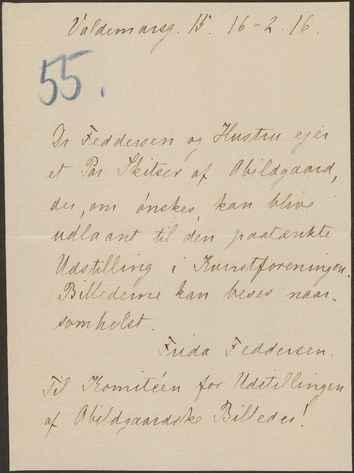 Valdemarsg. 15 16-2.16.
55.
Dr Feddersen og Hustru ejer
et Par Skitser af Abildgaard,
der, om ønskes, kan blive
udlaant til den paatænkte
Udstilling i Kunstforeningen.
Billederne kan beses naar-
somhelst.
Frida Feddersen.
Til Komitéen for Udstillingen
af Abildgaardske Billeder!